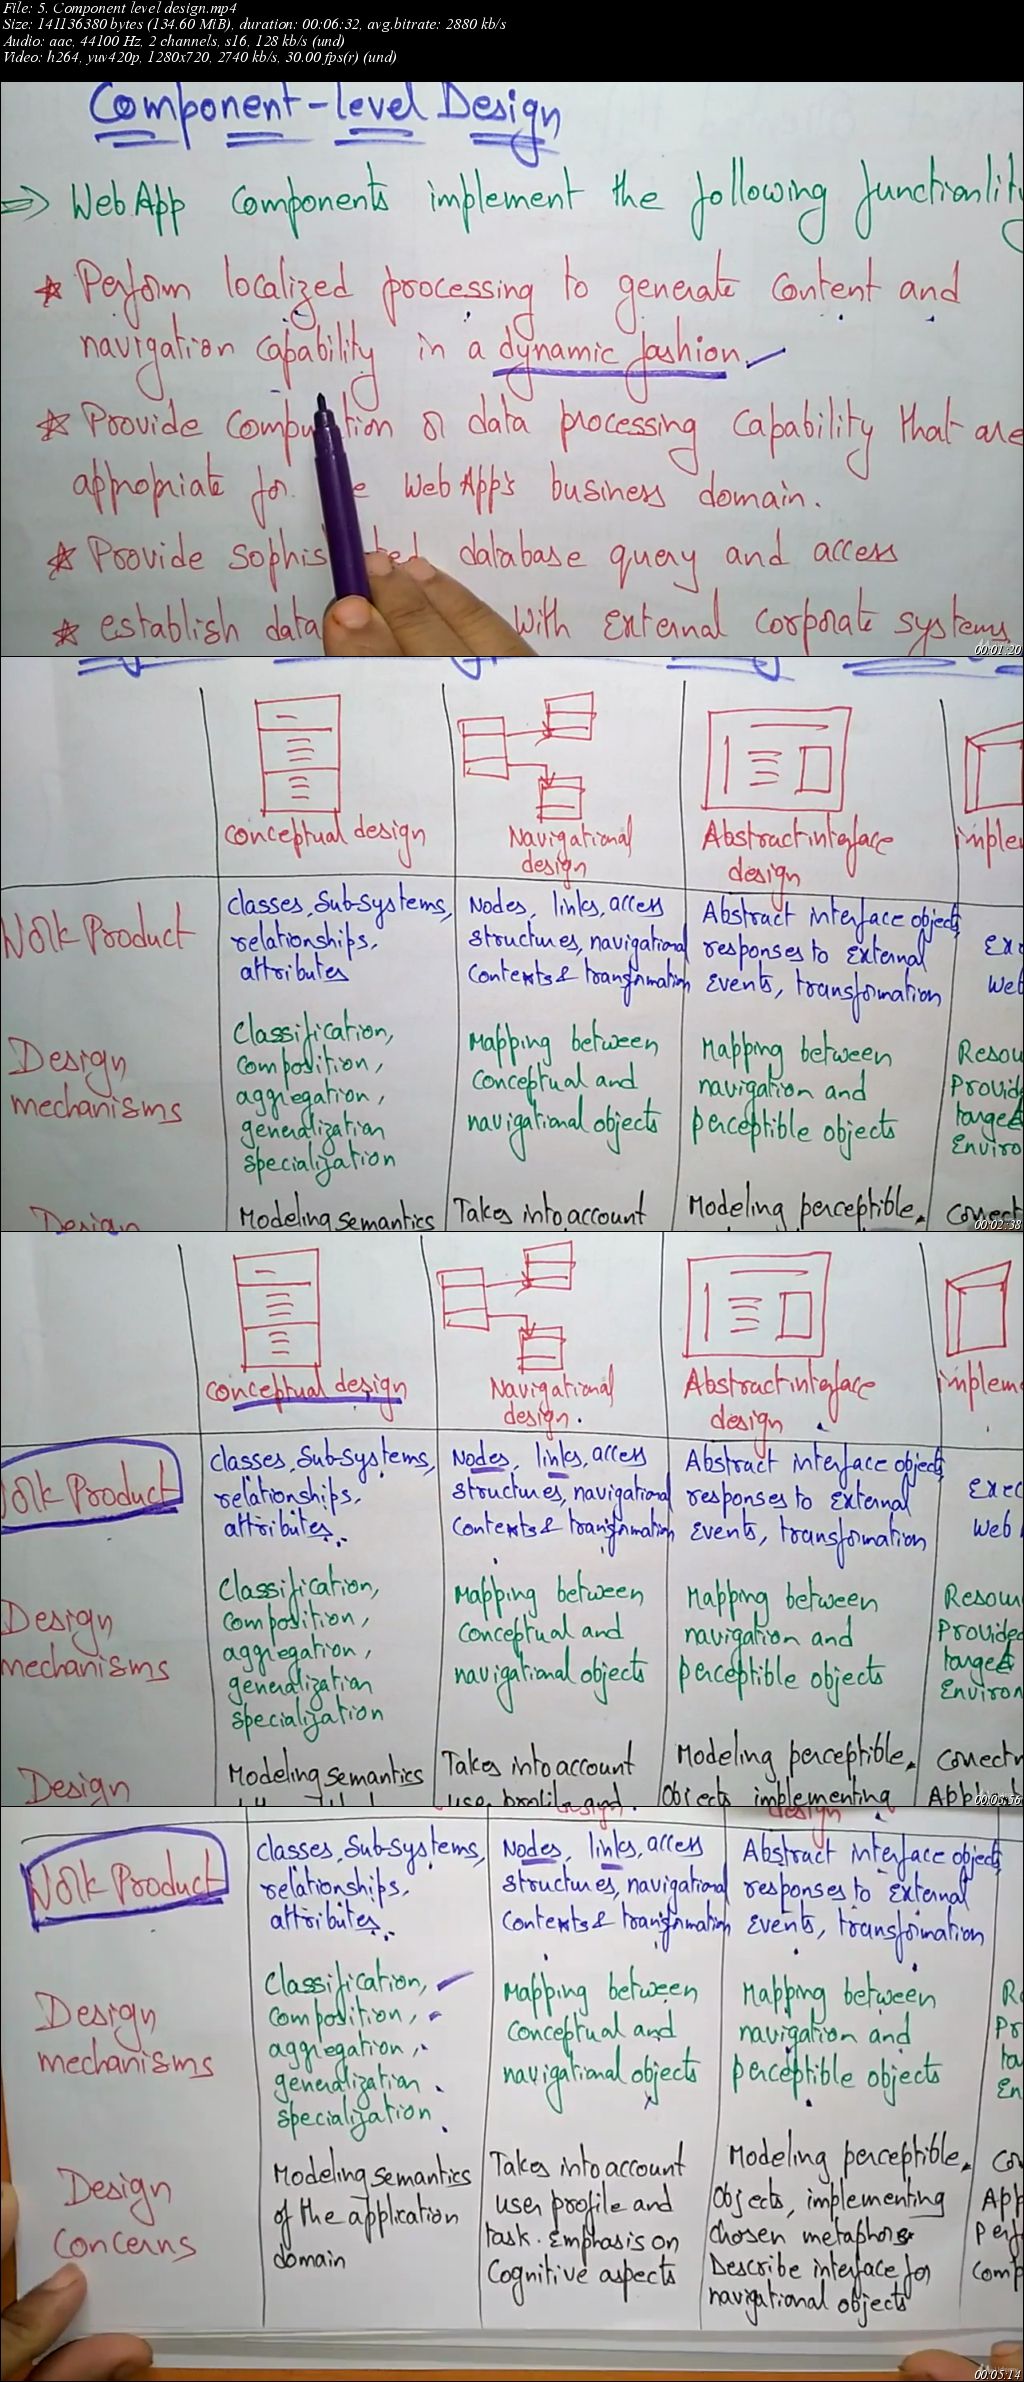 File: 5. Component level design.mp4
Size: 141136380 bytes (134.60 MiB), duration: 00:06:32, avg.bitrate: 2880 kb/s
Audio: aac, 44100 Hz, 2 channels, s16, 128 kb/s (und)
Video: h264, yuv420p, 1280x720, 2740 kb/s, 30.00 fps(r) (und)
Component-level Design
⇒ WebApp Components implement the following functionlity
* Perform localized processing to generate content and
navigation capability in a dynamic fashion.
* Provide or data processing capability that are
appropriate for WebApp's business domain.
* Provide database query and access
* establish data with External corporate systems
00:01:20
conceptual design
Navigational
design
Abstract interface
design
Work Product
classes, Sub-Systems,
relationships,
attributes
Nodes, links, access
structures, navigational
Contexts & transformation
Abstract interface objects,
responses to External
Events, transformation
Web
Design
mechanisms
Classification,
composition,
aggregation,
generalization
specialization
Mapping between
conceptual and
navigational objects
Mapping between
navigation and
perceptible objects
Design
Modeling semantics
Takes into account
Modeling perceptible
00:02:38
conceptual design
Navigational
design.
Abstract interface
design
Work Product
classes, Sub-Systems,
relationships,
attributes
Nodes, links, access
structures, navigational
Contexts & transformation
Abstract interface objects,
responses to External
Events, transformation
Web
Design
mechanisms
Classification,
composition,
aggregation,
generalization
specialization
Mapping between
conceptual and
navigational objects
Mapping between
navigation and
perceptible objects
Provided
target
Design
Modeling semantics
Takes into account
Modeling perceptible
Objects implementing
00:03:56
Work Product
classes, Sub-Systems,
relationships,
attributes
Nodes, links, access
structures, navigational
Contexts & transformation
Abstract interface objects,
responses to External
Events, transformation
Design
mechanisms
Classification,
composition,
aggregation,
generalization
specialization
Mapping between
conceptual and
navigational objects
Mapping between
navigation and
perceptible objects
Design
Concerns
Modeling semantics
of the application
domain
Takes into account
user profile and
task. Emphasis on
Cognitive aspects
Modeling perceptible
Objects, implementing
chosen metaphors
Describe interface for
navigational objects
00:05:14